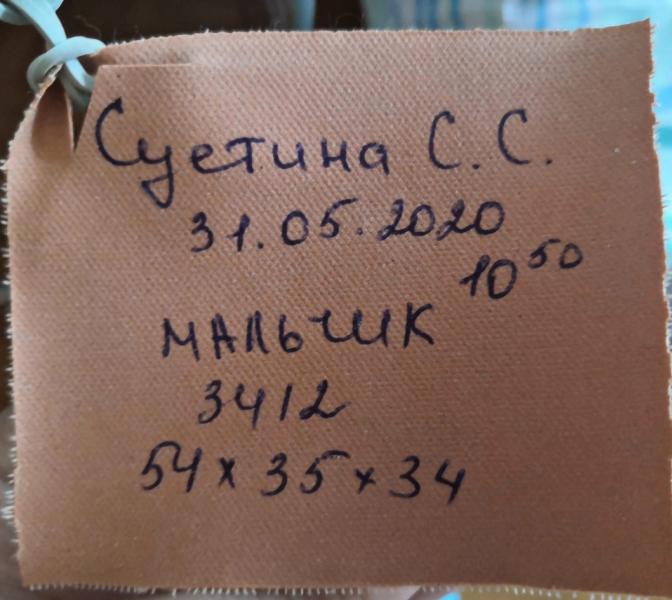 Суетина С. С.
31.05.2020
10 50
МАЛЬЧИК
3412
54 x 35 x 34